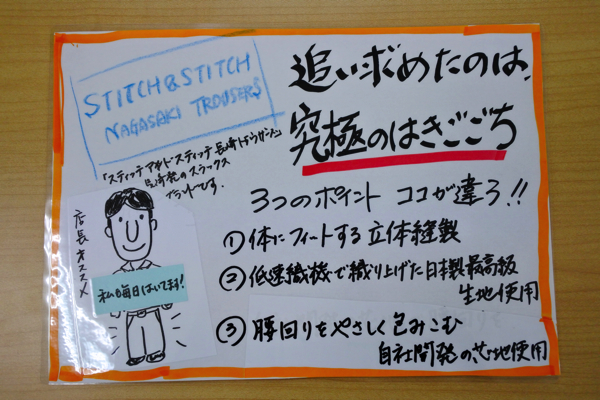 STITCH&STITCH
NAGASAKI TROUSERS
「スティッチアンドスティッチ長崎トラウザース」
長崎発のスラックス
ブランドです。
追い求めたのは、
究極のはきごごち
3つのポイント ココが違う!!
① 体にフィットする立体縫製
② 低速織機で織り上げた日本製最高級
生地使用
③ 腰回りをやさしく包みこむ
自社開発の芯地使用
店長オススメ
私も毎日はいてます!